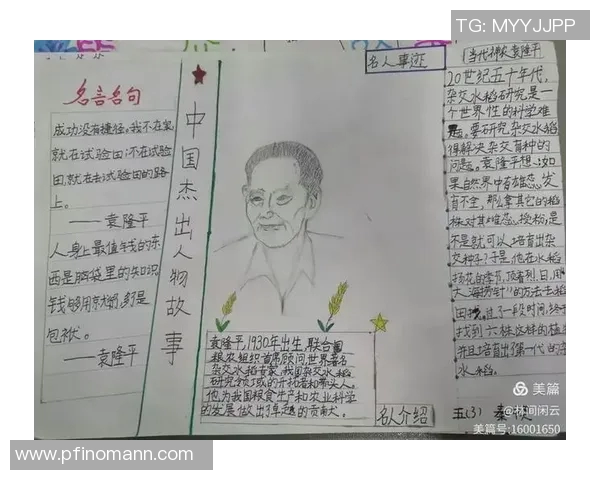 TG: MYYJJPP
名言名句
成功没有捷径,我不在家,
就在试验田;不在试验
田,就在去试验田的路
上。
——袁隆平
人身上最值钱的东
西是脑袋里的知识
钱够用就行,多了是
包袱。
——袁隆平
中国杰出人物故事
名人事迹
袁隆平,1930年出生,联合国
粮农组织首席顾问,世界著名
杂交水稻专家,我国杂交水稻
研究领域的开拓者和带头人。
他为我国粮食生产和农业科学
的发展做出了卓越的贡献。
名人介绍
当代神农袁隆平
20世纪五十年代,
杂交水稻研究是一
个世界性的科学难
题。要研究杂交水稻
得解决杂交育种的
问题。袁隆平想:如
果自然界中有雄蕊发
育不全,那么拿其它的稻
株对其雌蕊授粉,是
不是就可以培育出杂
交种子?于是,他在水稻
扬花的季节,顶着烈日,用
大海捞针"的方法去稻
田找。且了一段时间,终于
找到六株这样的植
并且培育出了第一代的杂
水稻。
五(3)
美篇
@林间闲云
美篇号:16001650
www.pfinomann.com